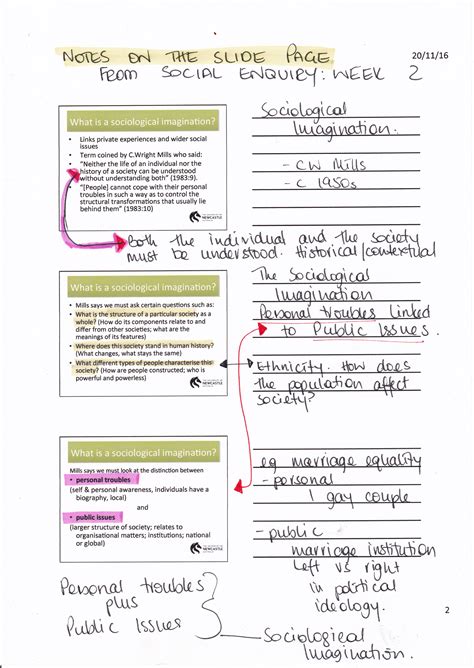 20/11/16
NOTES ON THE SLIDE PAGE
FROM SOCIAL ENQUIRY: WEEK 2
What is a sociological imagination?
• Links private experiences and wider social
issues
• Term coined by C.Wright Mills who said:
• “Neither the life of an individual nor the
history of a society can be understood
without understanding both” (1983:9).
• “[People] cannot cope with their personal
troubles in such a way as to control the
structural transformations that usually lie
behind them” (1983:10)
NEWCASTLE
Sociological
Imagination.
- CW Mills
- C 1950s
Both the individual and the society
must be understood. Historical/contextual
What is a sociological imagination?
• Mills says we must ask certain questions such as:
• What is the structure of a particular society as a
whole? (How do its components relate to and
differ from other societies; what are the
meanings of its features)
• Where does this society stand in human history?
(What changes, what stays the same)
• What different types of people characterise this
society? (How are people constructed; who is
powerful and powerless)
NEWCASTLE
The Sociological
Imagination
Personal troubles linked
to Public Issues.
Ethnicity. How does
the population affect
society?
What is a sociological imagination?
Mills says we must look at the distinction between
• personal troubles
(self & personal awareness, individuals have a
biography, local)
and
• public issues
(larger structure of society; relates to
organisational matters; institutions; national
or global)
NEWCASTLE
eg marriage equality
- personal
1 gay couple
- public
marriage institution
Left vs right
in political
ideology.
2
Personal troubles
plus
Public Issues
Sociological
Imagination.